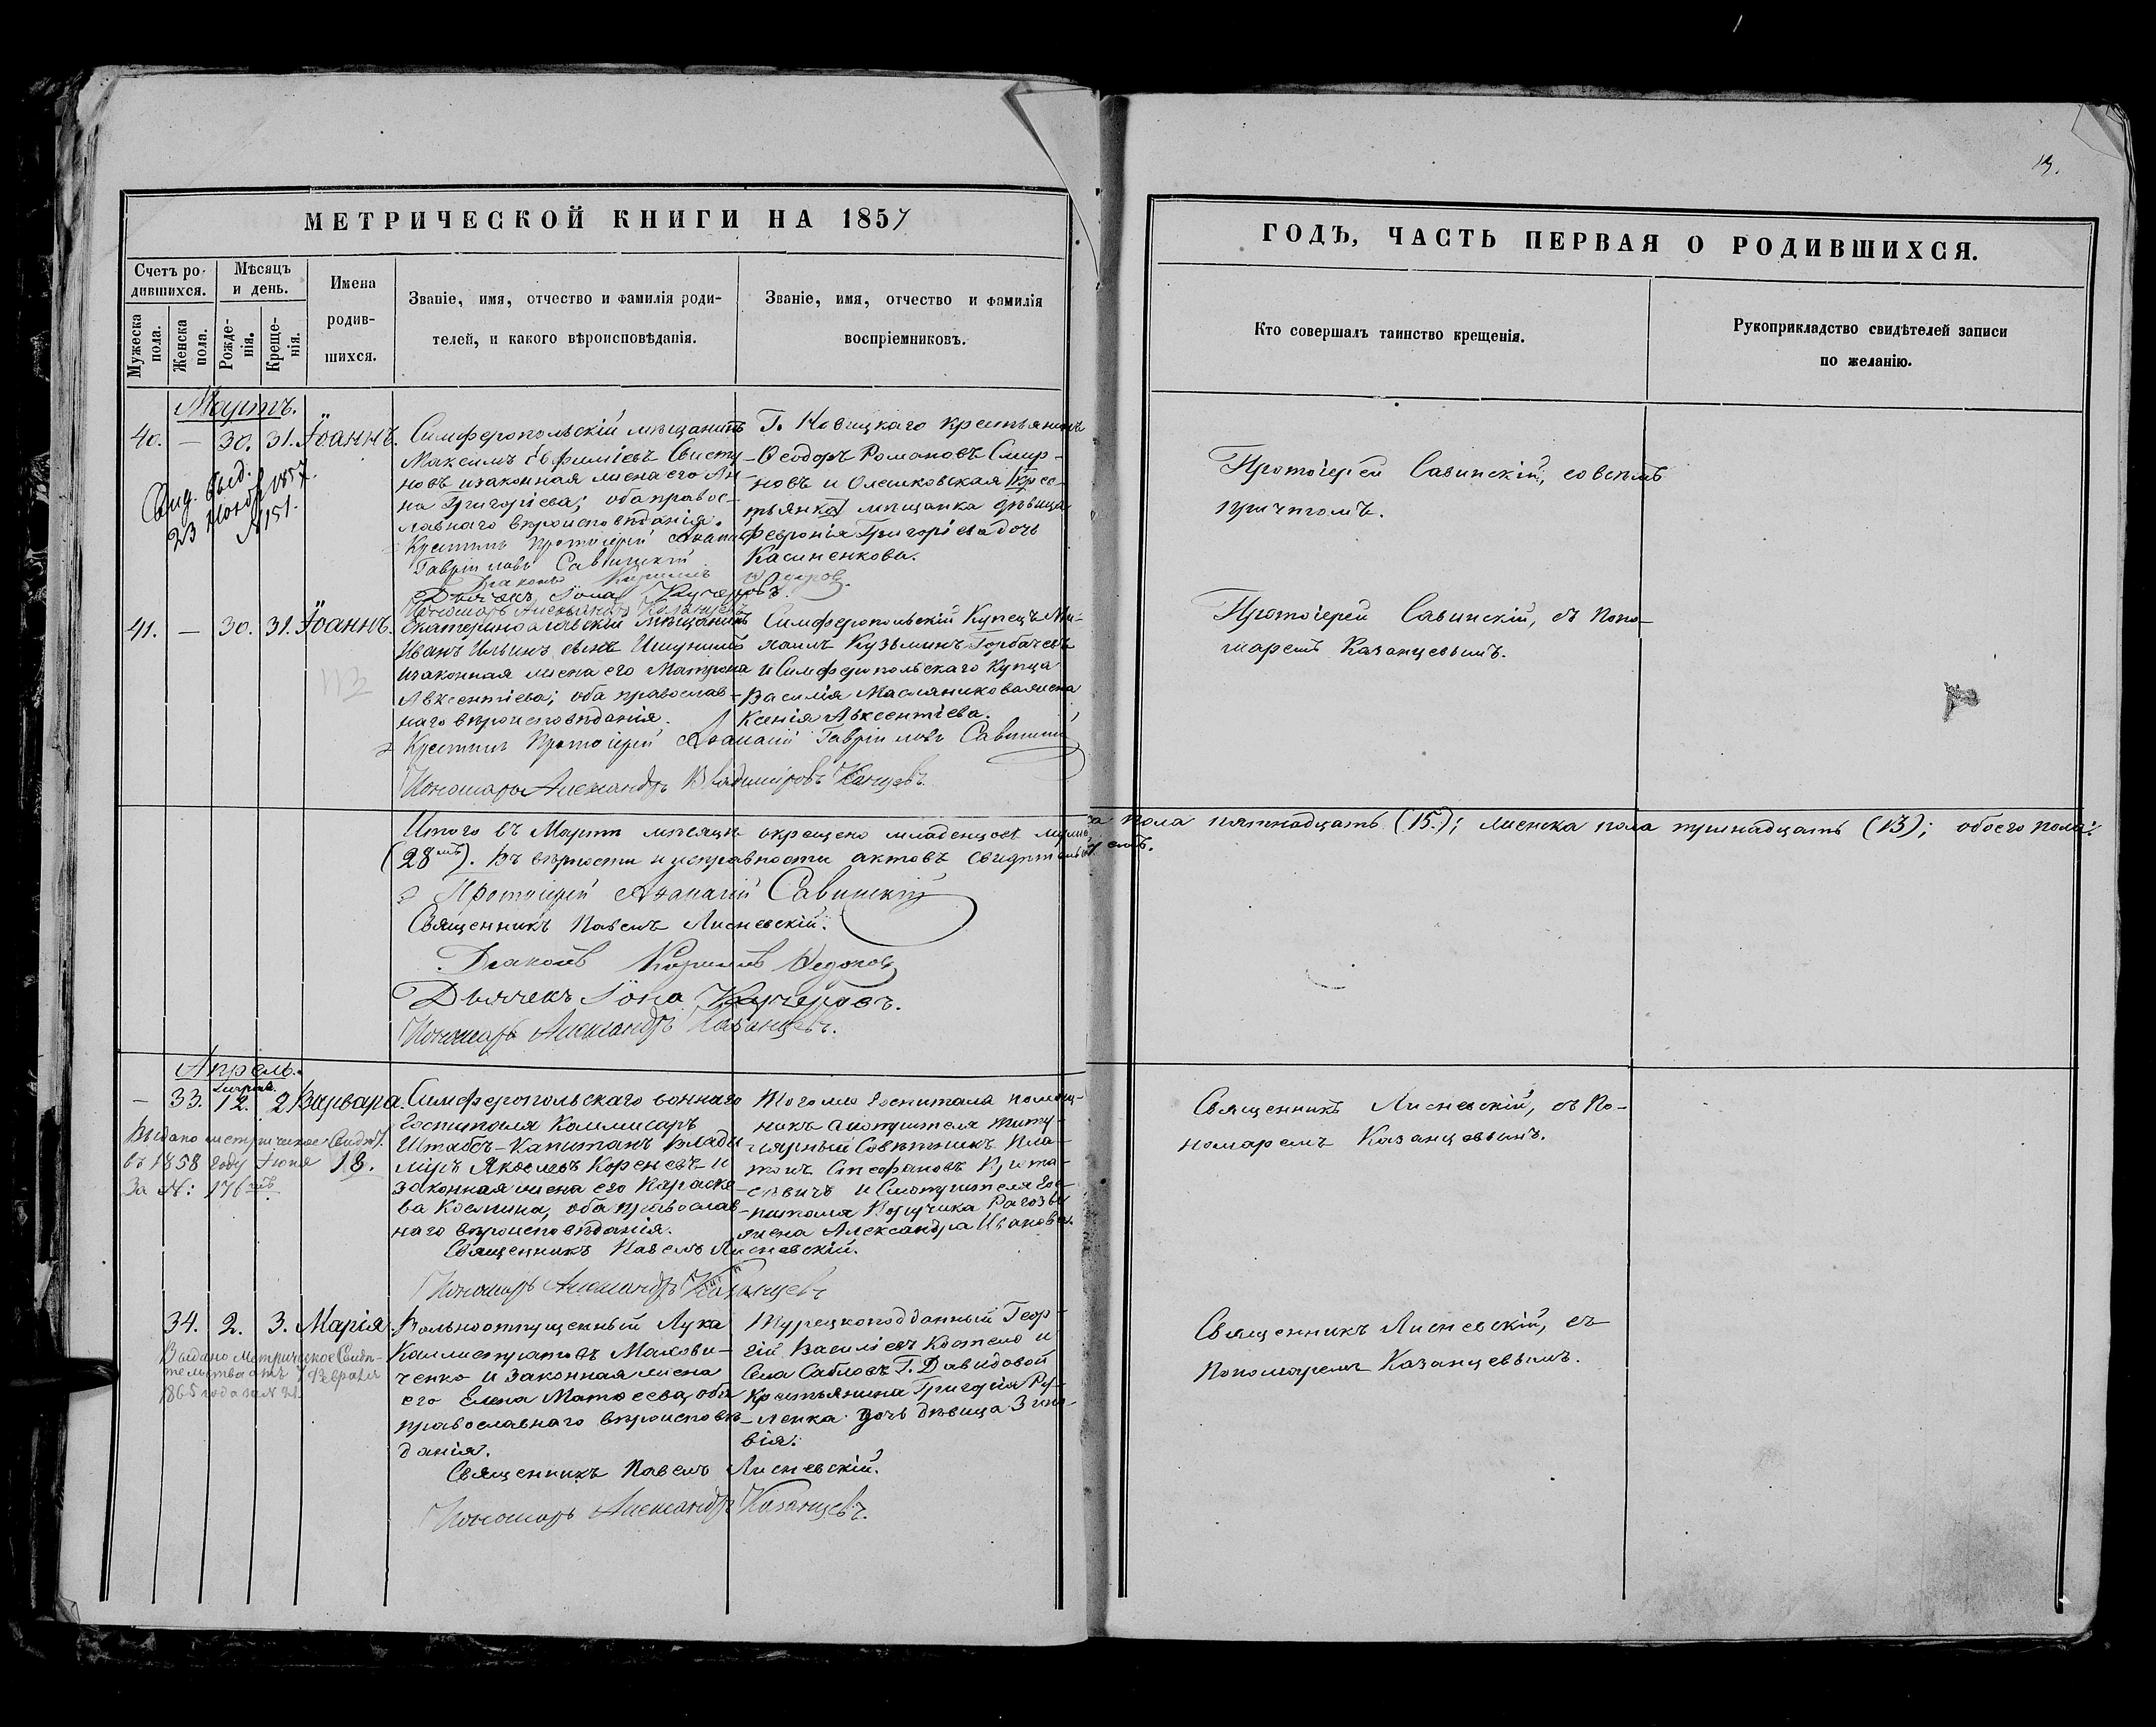 13.
МЕТРИЧЕСКОЙ КНИГИ НА 1857
ГОДЪ, ЧАСТЬ ПЕРВАЯ О РОДИВШИХСЯ.
Счетъ ро-
дившихся.
Мужеска
пола.
Женска
пола.
Мѣсяцъ
и день.
Рожде-
нія.
Креще-
нія.
Имена
родив-
шихся.
Званіе, имя, отчество и фамилія роди-
телей, и какого вѣроисповѣданія.
Званіе, имя, отчество и фамилія
воспріемниковъ.
Кто совершалъ таинство крещенія.
Рукоприкладство свидѣтелей записи
по желанію.
Мартъ.
40. — 30. 31. Іоаннъ.
23 Нояб. 1857.
№ 151.
Симферопольскій мѣщанинъ
Максимъ Ефиміевъ Свисту-
новъ изаконная жена его Ан-
на Григоріева; оба правос-
лавнаго вѣроисповѣданія.
Крестилъ Протоіерей Аѳанасій
Гавріиловъ Савинскій
Діаконъ Кириллъ Ѳедоровъ
Дьячекъ Іона Кучеровъ.
Пономарь Александръ Казанцевъ
Г. Новицкаго крестьянинъ
Ѳеодоръ Романовъ Смир-
новъ и Олешковская крес-
тьянка мѣщанка дѣвица
Февронія Григоріева дочь
Касиненкова.
Протоіерей Савинскій, совсѣмъ
причтомъ.
41. — 30. 31. Іоаннъ.
113
Екатеринославскій мѣщанинъ
Иванъ Ильинъ сынъ
изаконная жена его Матрона
Авксентіева; оба православ-
наго вѣроисповѣданія.
Крестилъ Протоіерей Аѳанасій Гавріиловъ Савинскій
Пономарь Александръ Владиміровъ Казанцевъ.
Симферопольскій Купецъ Ми-
хаилъ Кузьминъ Горбачевъ
и Симферопольскаго Купца
Василія Масляникова жена
Ксенія Авксентіева.
Протоіерей Савинскій, съ поно-
маремъ Казанцевымъ.
Итого въ Мартѣ мѣсяцѣ окрещено младенцовъ мужеска пола пятнадцать (15.); женска пола тринадцать (13); обоего пола:
(28мь). Въ вѣрности и исправности актовъ свидѣтельствуемъ.
Протоіерей Аѳанасій Савинскій
Священникъ Павелъ Лисневскій.
Діаконъ Кириллъ Ѳедоровъ
Дьячекъ Іона Кучеровъ.
Пономарь Александръ Казанцевъ.
Апрель.
— 33. Марта. 12. 2 Варвара.
Выдано метрическое Свидѣт.
въ 1858 году Іюня 18.
За №: 176
Симферопольскаго военнаго
Госпиталя Коммисаръ
Штабсъ-Капитанъ Влади-
міръ Яковлевъ Кореневъ и
законная жена его Параске-
ва Космина, оба православ-
наго вѣроисповѣданія.
Священникъ Павелъ Лисневскій.
Пономарь Александръ Казанцевъ
Тогоже Госпиталя помощ-
никъ смотрителя титу-
лярный Совѣтникъ Пла-
тонъ Стефановъ
и Смотрителя Гос-
питаля Поручика Рагозы
жена Александра Ивановна.
Священникъ Лисневскій, съ По-
номаремъ Казанцевымъ.
34. 2. 3. Марія.
Выдано Метрическое Свидѣ-
тельство отъ 1 Февраля
1865 года за №
Вольноотпущенный Лука
Каллистратовъ Махови-
ченко и законная жена
его Елена Матѳеева, оба
православнаго вѣроисповѣ-
данія.
Священникъ Павелъ Лисневскій.
Пономарь Александръ Казанцевъ.
Турецкоподданный Геор-
гій Василіевъ Костело и
Села Сабловъ Г. Давидовой
крестьянина Григорія Ру-
ленка дочь дѣвица Зино-
вія.
Священникъ Лисневскій, съ
Пономаремъ Казанцевымъ.